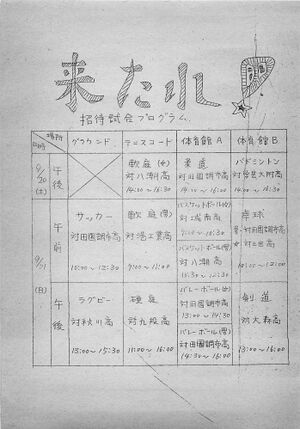 来たれ!
招待試合プログラム
場所 日時 グラウンド テニスコート 体育館A 体育館B
9/20 (土) 午後
軟庭(女) 対八潮高 14:00〜16:00
柔道 対田園調布高 14:00〜16:00
バドミントン 対学芸大附高 14:00〜16:00
9/21 (日) 午前
サッカー 対田園調布高 10:00〜12:30
軟庭(男) 対港工業高 9:00〜11:00
バスケットボール(女) 対城南高
バスケットボール(男) 対八潮高 10:30〜12:30
卓球 対田園調布高 10:00〜12:00
午後
ラグビー 対秋川高 13:00〜15:30
硬庭 対九段高 11:00〜16:00
バレーボール(女) 対田園調布高 13:00〜14:30
バレーボール(男) 対田園調布高 14:30〜16:00
剣道 対大森高 13:00〜16:00